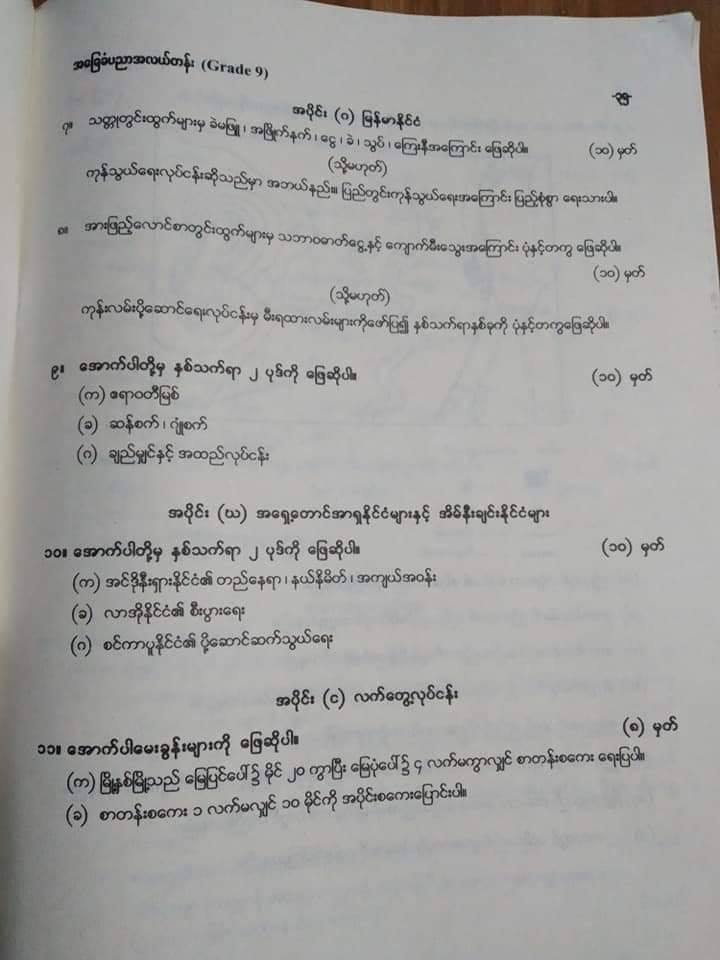 အခြေခံပညာအလယ်တန်း (Grade 9)
-၃၅-
အပိုင်း (ဂ) မြန်မာနိုင်ငံ
၇။ သတ္တုတွင်းထွက်များမှ ခဲမဖြူ ၊ အဖြိုက်နက် ၊ ငွေ ၊ ခဲ ၊ သွပ် ၊ ကြေးနီအကြောင်း ဖြေဆိုပါ။ (၁၀) မှတ်
(သို့မဟုတ်)
ကုန်သွယ်ရေးလုပ်ငန်းဆိုသည်မှာ အဘယ်နည်း။ ပြည်တွင်းကုန်သွယ်ရေးအကြောင်း ပြည့်စုံစွာ ရေးသားပါ။
၈။ အားဖြည့်လောင်စာတွင်းထွက်များမှ သဘာဝဓာတ်ငွေ့နှင့် ကျောက်မီးသွေးအကြောင်း ပုံနှင့်တကွ ဖြေဆိုပါ။
(၁၀) မှတ်
(သို့မဟုတ်)
ကုန်းလမ်းပို့ဆောင်ရေးလုပ်ငန်းမှ မီးရထားလမ်းများကိုဖော်ပြ၍ နှစ်သက်ရာနှစ်ခုကို ပုံနှင့်တကွဖြေဆိုပါ။
၉။ အောက်ပါတို့မှ နှစ်သက်ရာ ၂ ပုဒ်ကို ဖြေဆိုပါ။ (၁၀) မှတ်
(က) ဧရာဝတီမြစ်
(ခ) ဆန်စက် ၊ ဂျုံစက်
(ဂ) ချည်မျှင်နှင့် အထည်လုပ်ငန်း
အပိုင်း (ဃ) အရှေ့တောင်အာရှနိုင်ငံများနှင့် အိမ်နီးချင်းနိုင်ငံများ
၁၀။ အောက်ပါတို့မှ နှစ်သက်ရာ ၂ ပုဒ်ကို ဖြေဆိုပါ။ (၁၀) မှတ်
(က) အင်ဒိုနီးရှားနိုင်ငံ၏ တည်နေရာ ၊ နယ်နိမိတ် ၊ အကျယ်အဝန်း
(ခ) လာအိုနိုင်ငံ၏ စီးပွားရေး
(ဂ) စင်ကာပူနိုင်ငံ၏ ပို့ဆောင်ဆက်သွယ်ရေး
အပိုင်း (င) လက်တွေ့လုပ်ငန်း
၁၁။ အောက်ပါမေးခွန်းများကို ဖြေဆိုပါ။ (၈) မှတ်
(က) မြို့နှစ်မြို့သည် မြေပြင်ပေါ်၌ မိုင် ၂၀ ကွာပြီး မြေပုံပေါ်၌ ၄ လက်မကွာလျှင် စာတန်းစကေး ရေးပြပါ။
(ခ) စာတန်းစကေး ၁ လက်မလျှင် ၁၀ မိုင်ကို အပိုင်းစကေးပြောင်းပါ။